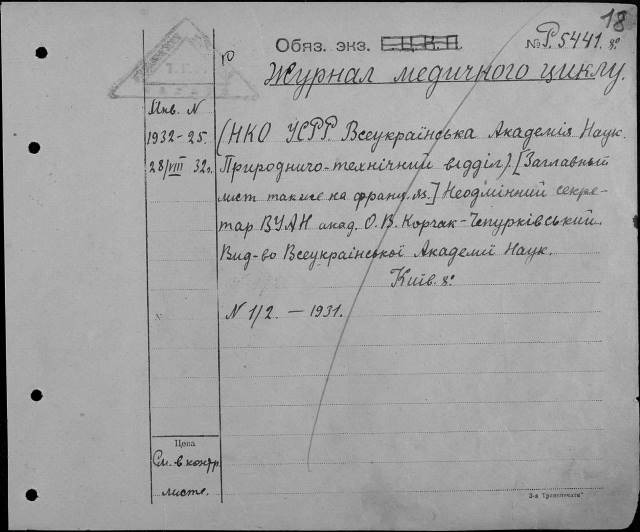 18
Обяз. экз. Е.Ц.К.П. № Р.5441. 8º
Журнал медичного циклу.
Инв. N
1932-25.
28/VIII 32г.
(НКО УСРР. Всеукраїнська Академія Наук.
Природничо-технічний відділ) [Заглавный
лист также на франц. яз.] Неодмінний секре-
тар ВУАН акад. О.В. Корчак-Чепурківський.
Вид-во Всеукраїнської Академії Наук.
Київ. 8º
N 1/2. — 1931.
Цена
См. в контр.
листе.
3-я "Транспечати"